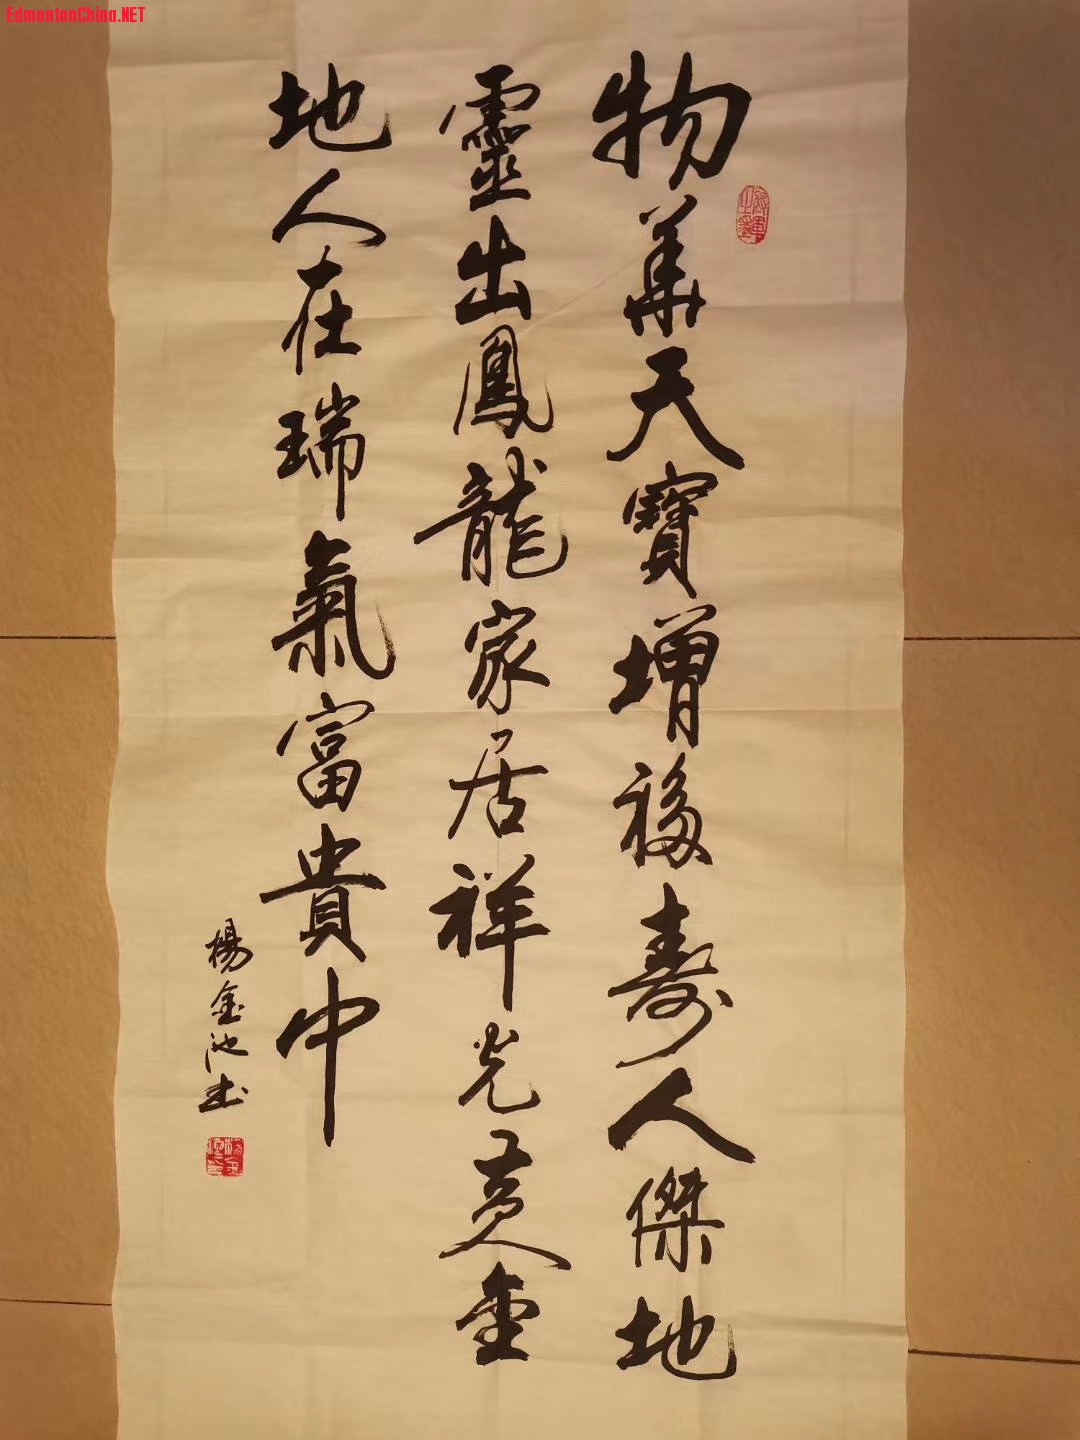 EdmontonChina.NET
物華天寶增福壽人傑地
靈出鳳龍家居祥光黄金
地人在瑞氣富貴中
楊金池书